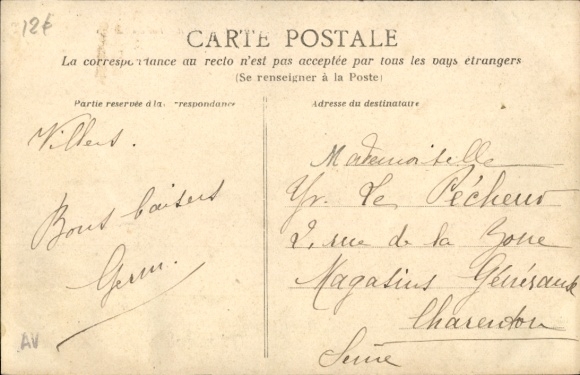 12€
CARTE POSTALE
La correspondance au recto n'est pas acceptée par tous les pays étrangers
(Se renseigner à la Poste)
Partie reservée à la correspondance
Adresse du destinataire
Villers.
Bons baisers
Germ.
Mademoiselle
Yv. Le Pécheur
2, rue de la Zone
Magasins Généraux
Charenton
Seine
AV